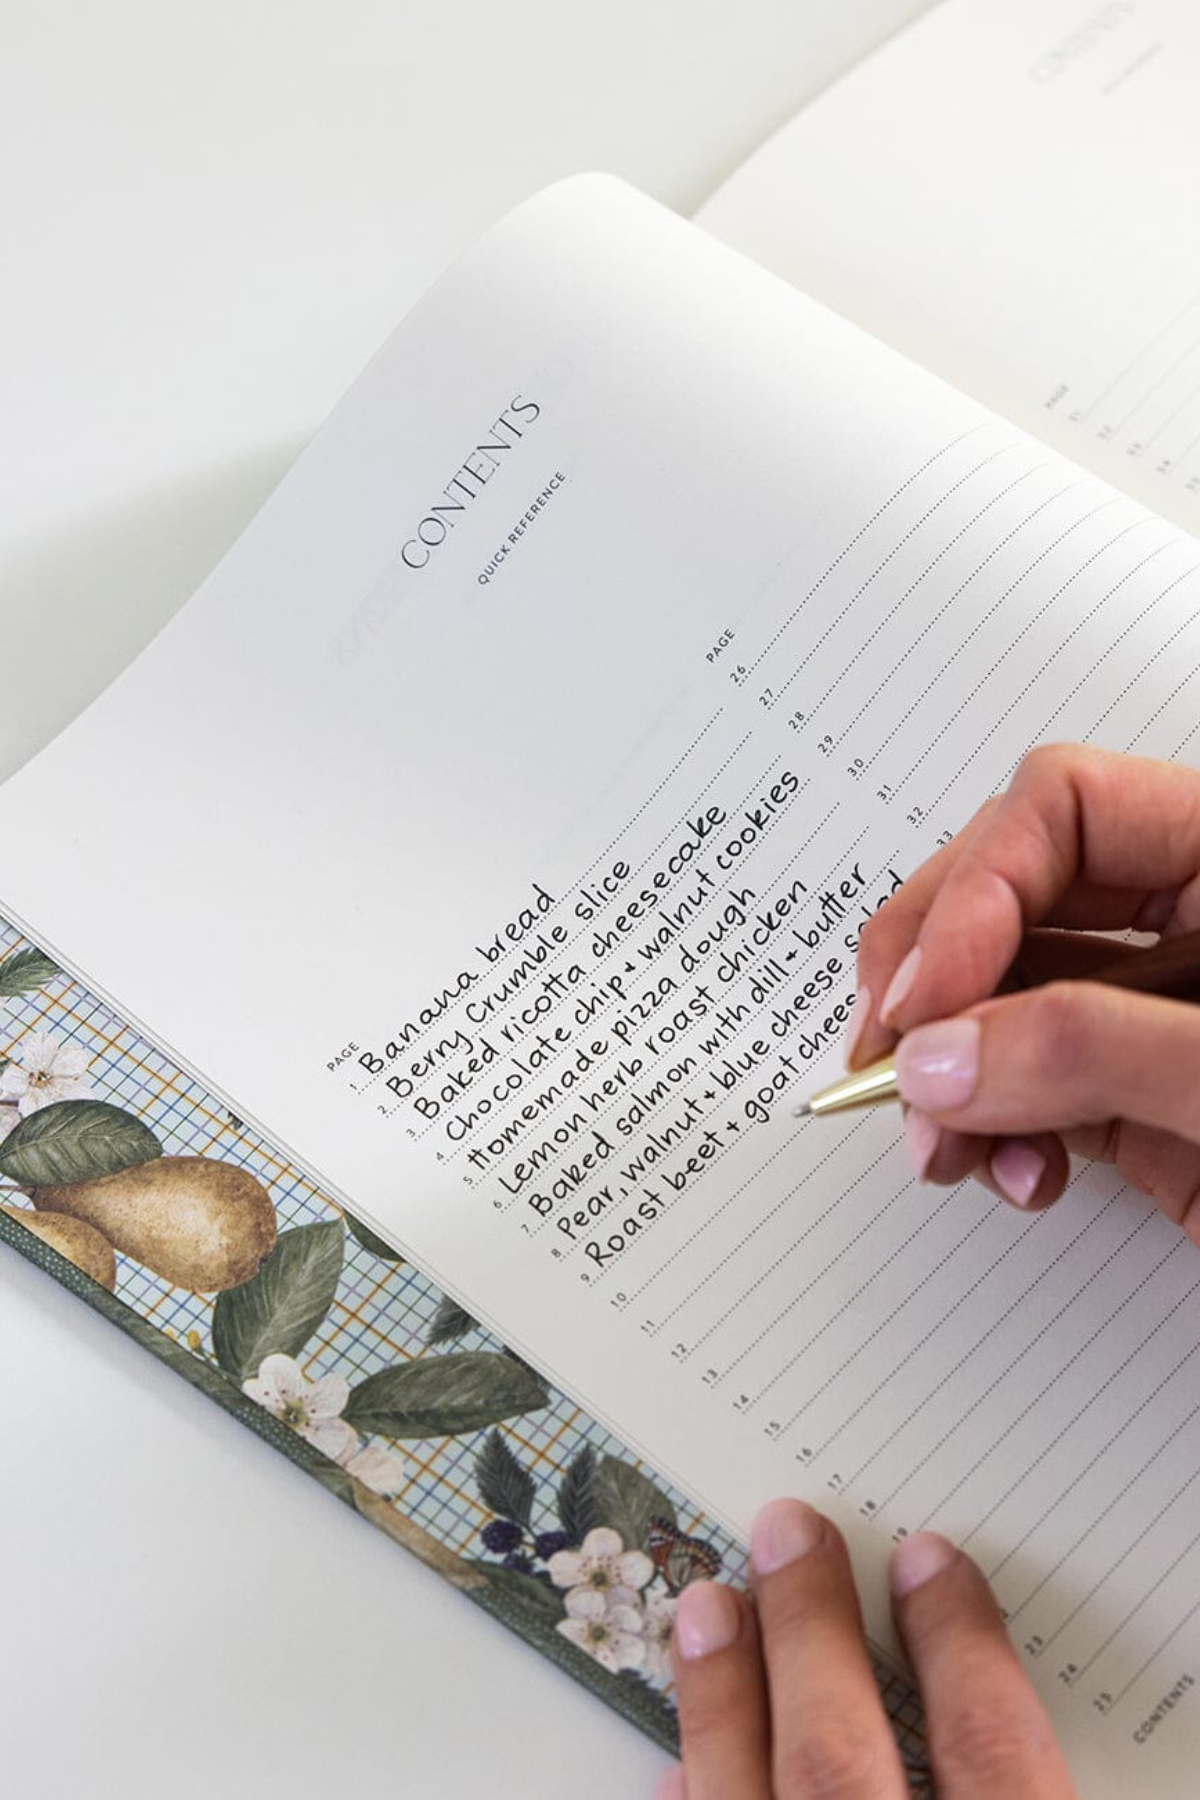 CONTENTS
QUICK REFERENCE
PAGE
1. Banana bread
2. Berry Crumble slice
3. Baked ricotta cheesecake
4. Chocolate chip + walnut cookies
5. Homemade pizza dough
6. Lemon herb roast chicken
7. Baked salmon with dill + butter
8. Pear, walnut + blue cheese salad
9. Roast beet + goat chees
10
11
12
13
14
15
16
17
18
19
23
24
25
PAGE
26
27
28
29
30
31
32
33
CONTENTS
CONTENTS
PAGE
51
52
53
54